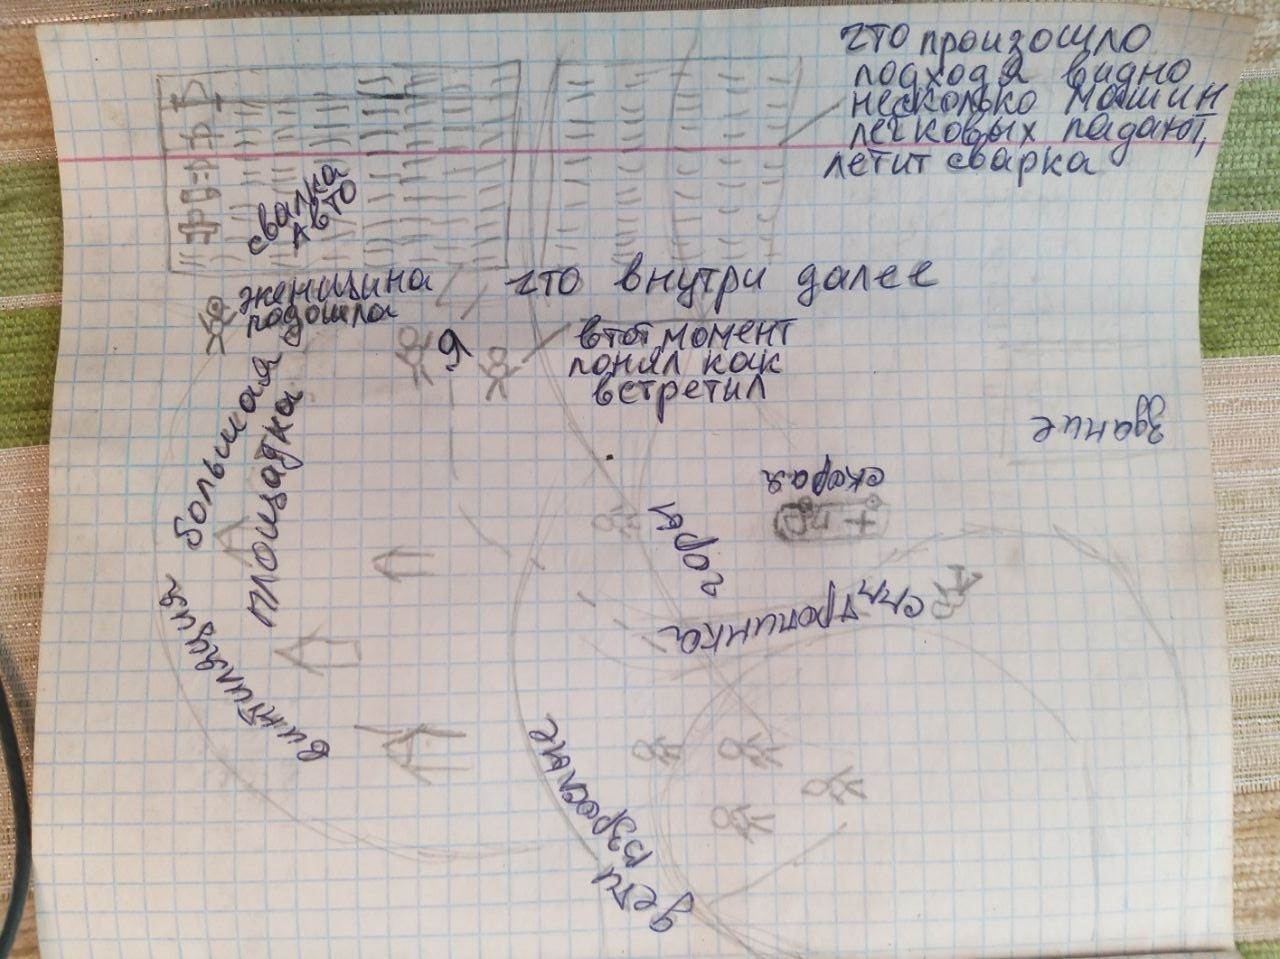 что произошло
подходя видно
несколько машин
легковых падают,
летит сварка
свалка
авто
женщина
подошла
что внутри далее
я
в тот момент
понял как
встретил
большая
площадка
здание
скорая
горы
тропинка
винтиляция
дети взрослые